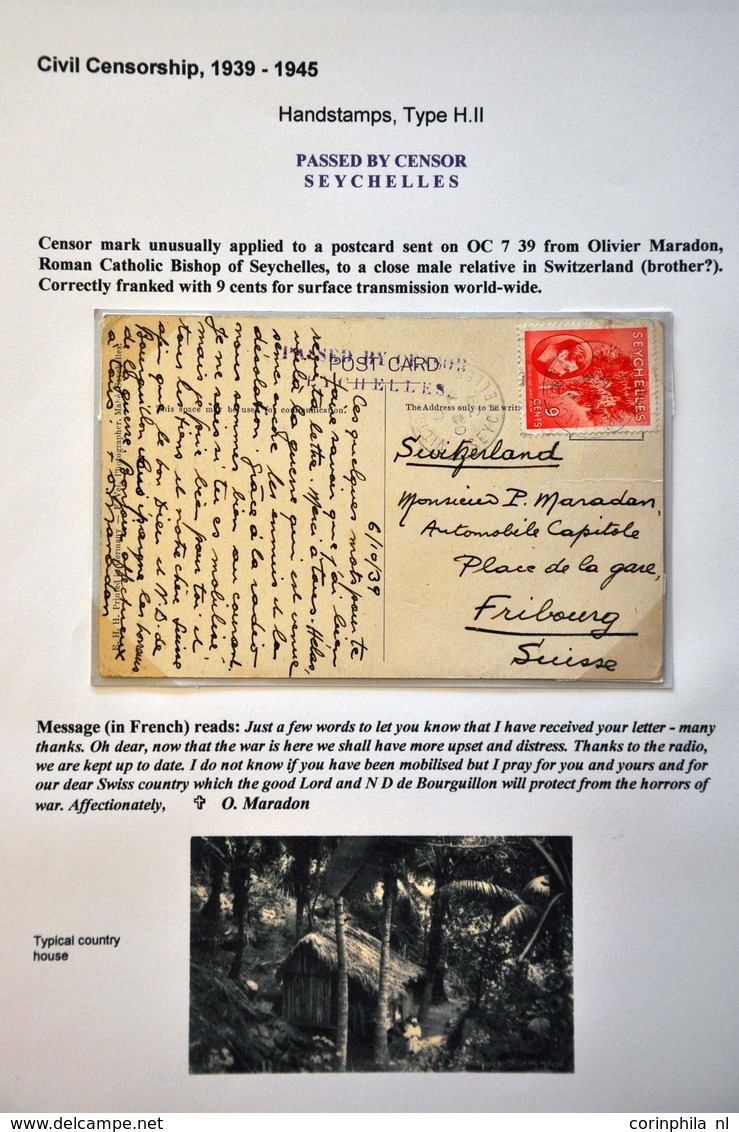 Civil Censorship, 1939 - 1945
Handstamps, Type H.II
PASSED BY CENSOR
SEYCHELLES
Censor mark unusually applied to a postcard sent on OC 7 39 from Olivier Maradon,
Roman Catholic Bishop of Seychelles, to a close male relative in Switzerland (brother?).
Correctly franked with 9 cents for surface transmission world-wide.
PASSED BY CENSOR
SEYCHELLES
POST CARD
This space may be used for communication.
The Address only to be writt
SEYCHELLES
9
CENTS
6/10/39
Ces quelques mots pour te
faire savoir que j'ai bien
reçu ta lettre. Merci à tous. Hélas,
voilà la guerre qui est venue
semer encore les ennuis et la
désolation. Grâce à la radio
nous sommes bien au courant.
Je ne sais si tu es mobilisé,
mais je prie bien pour toi et
tous les tiens et notre chère Suisse
afin que le bon Dieu et N.D. de
Bourguillon vous épargne les horreurs
de la guerre. Bonjour affectueux
à tous. + O. Maradan
Switzerland
Monsieur P. Maradan,
Automobile Capitole
Place de la gare,
Fribourg
Suisse
Message (in French) reads: Just a few words to let you know that I have received your letter - many
thanks. Oh dear, now that the war is here we shall have more upset and distress. Thanks to the radio,
we are kept up to date. I do not know if you have been mobilised but I pray for you and yours and for
our dear Swiss country which the good Lord and N D de Bourguillon will protect from the horrors of
war. Affectionately, ✞ O. Maradon
Typical country
house
DELCAMPE.NET
corinphila nl